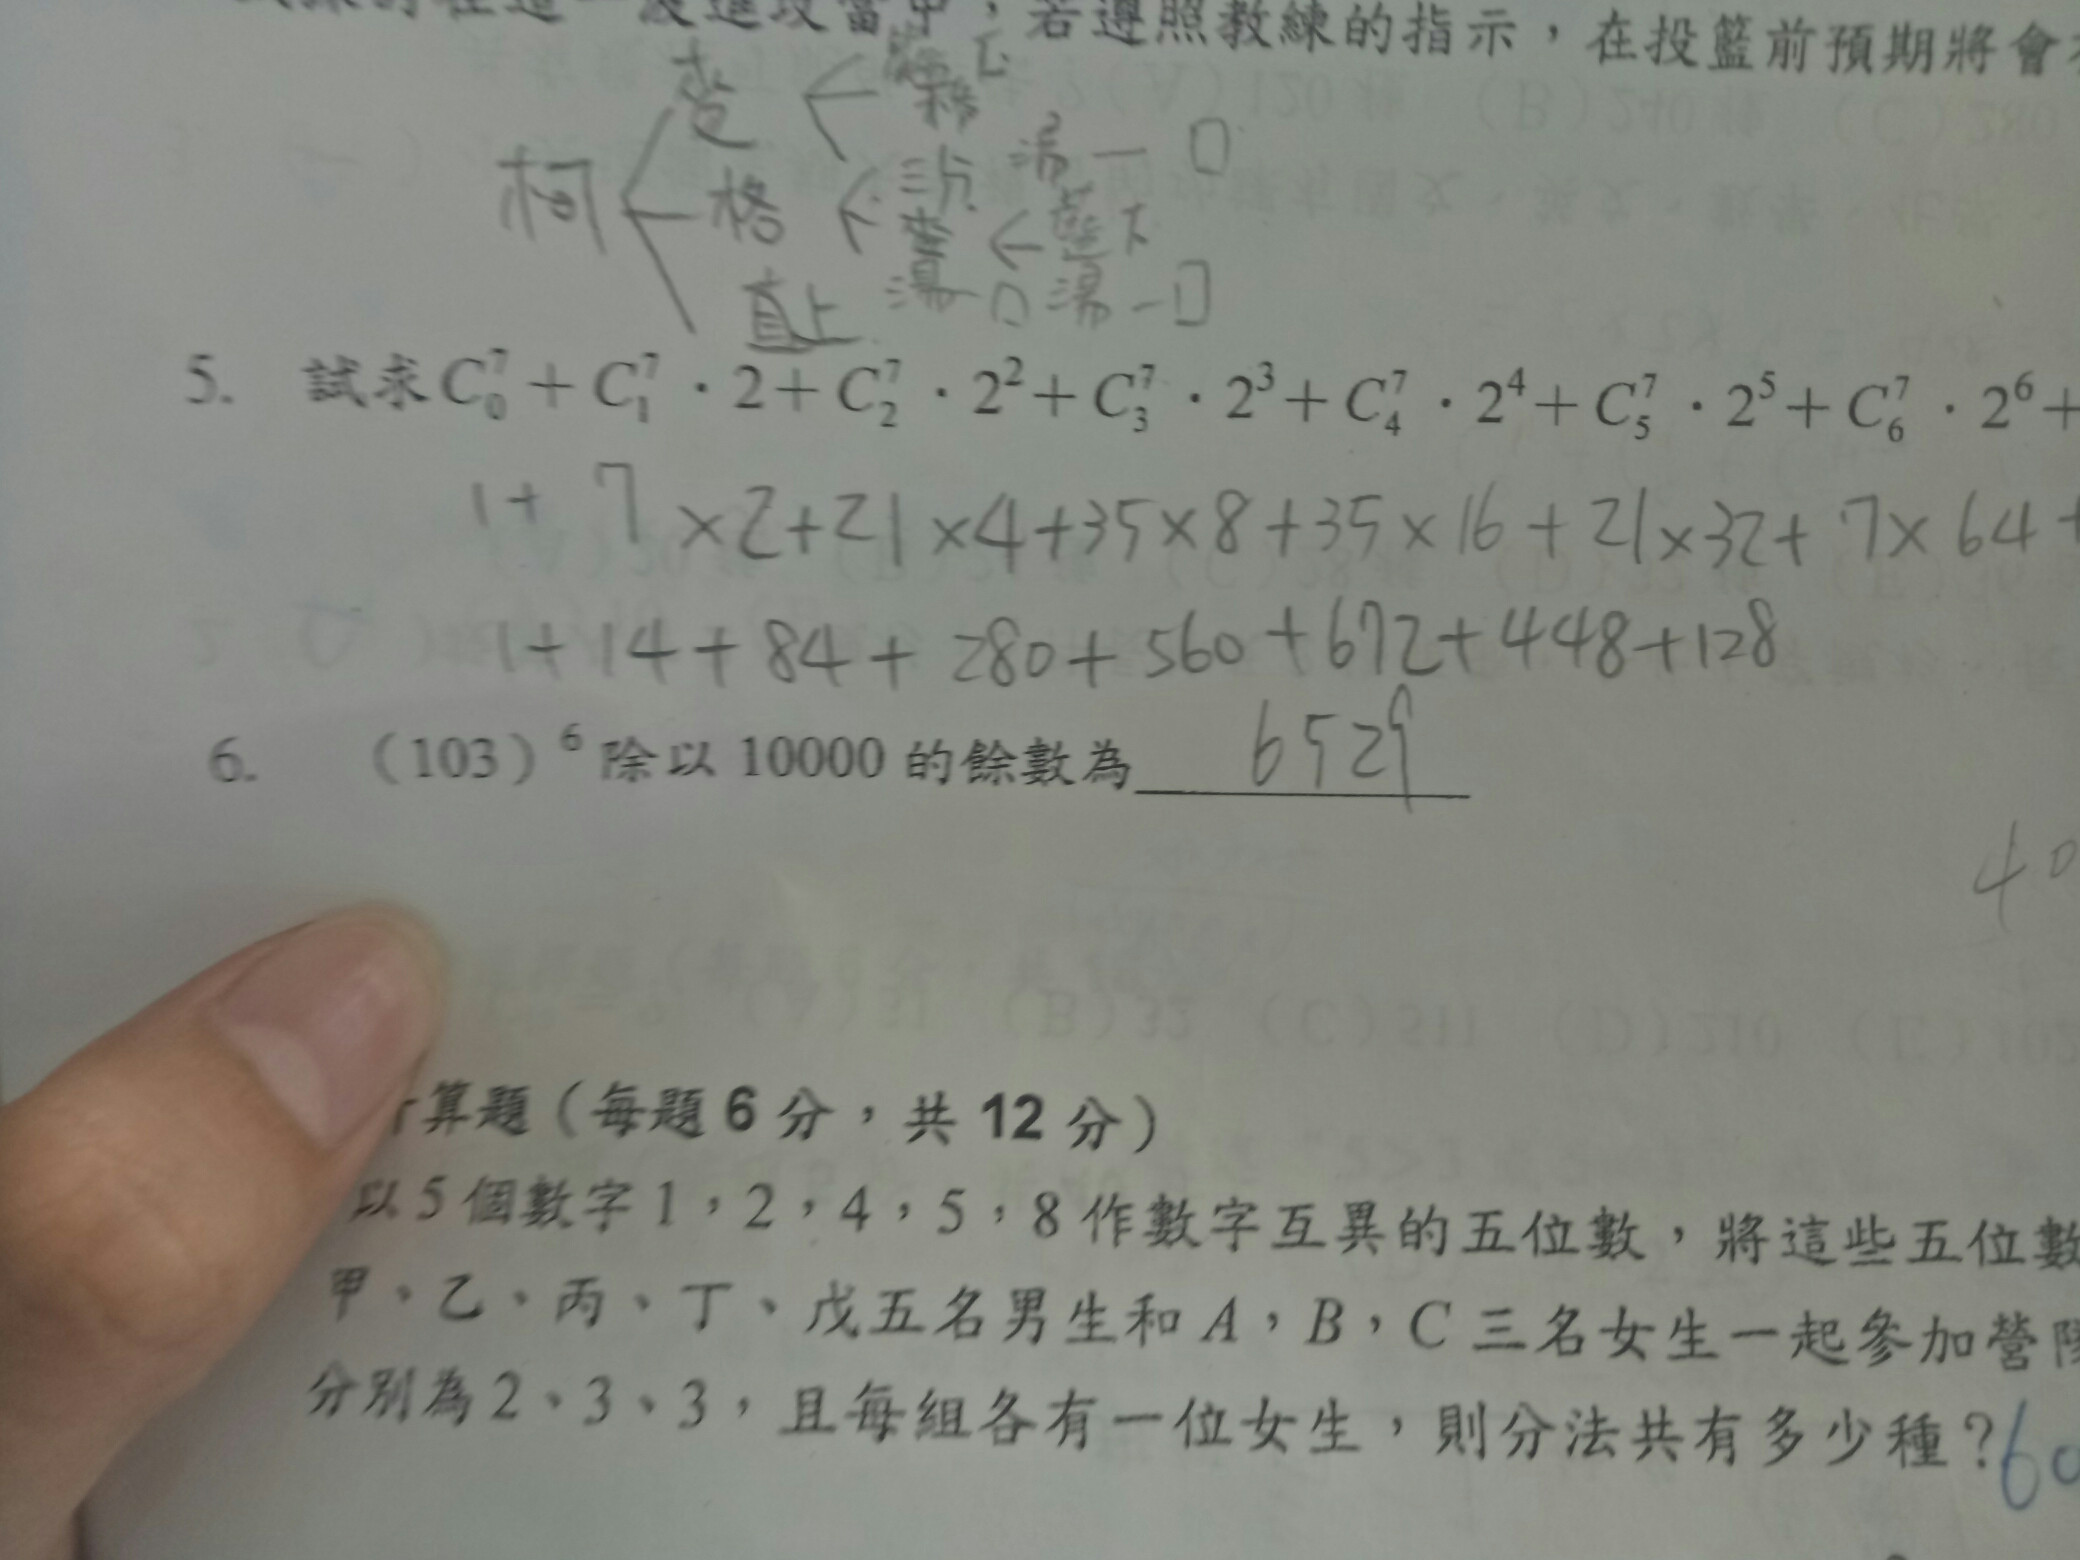 在這一波進攻當中，若遵照教練的指示，在投籃前預期將會
柯
格
三分 湯一口
直上 湯一口 湯一口
5. 試求C₀⁷＋C₁⁷．2＋C₂⁷．2²＋C₃⁷．2³＋C₄⁷．2⁴＋C₅⁷．2⁵＋C₆⁷．2⁶＋
1+ 7×2+21×4+35×8+35×16+21×32+7×64+
1+14+84+280+560+672+448+128
6. （103）⁶ 除以 10000 的餘數為 6529
40
算題（每題 6 分，共 12 分）
以 5 個數字 1，2，4，5，8 作數字互異的五位數，將這些五位數
甲、乙、丙、丁、戊五名男生和 A，B，C 三名女生一起參加營隊
分別為 2、3、3，且每組各有一位女生，則分法共有多少種？60